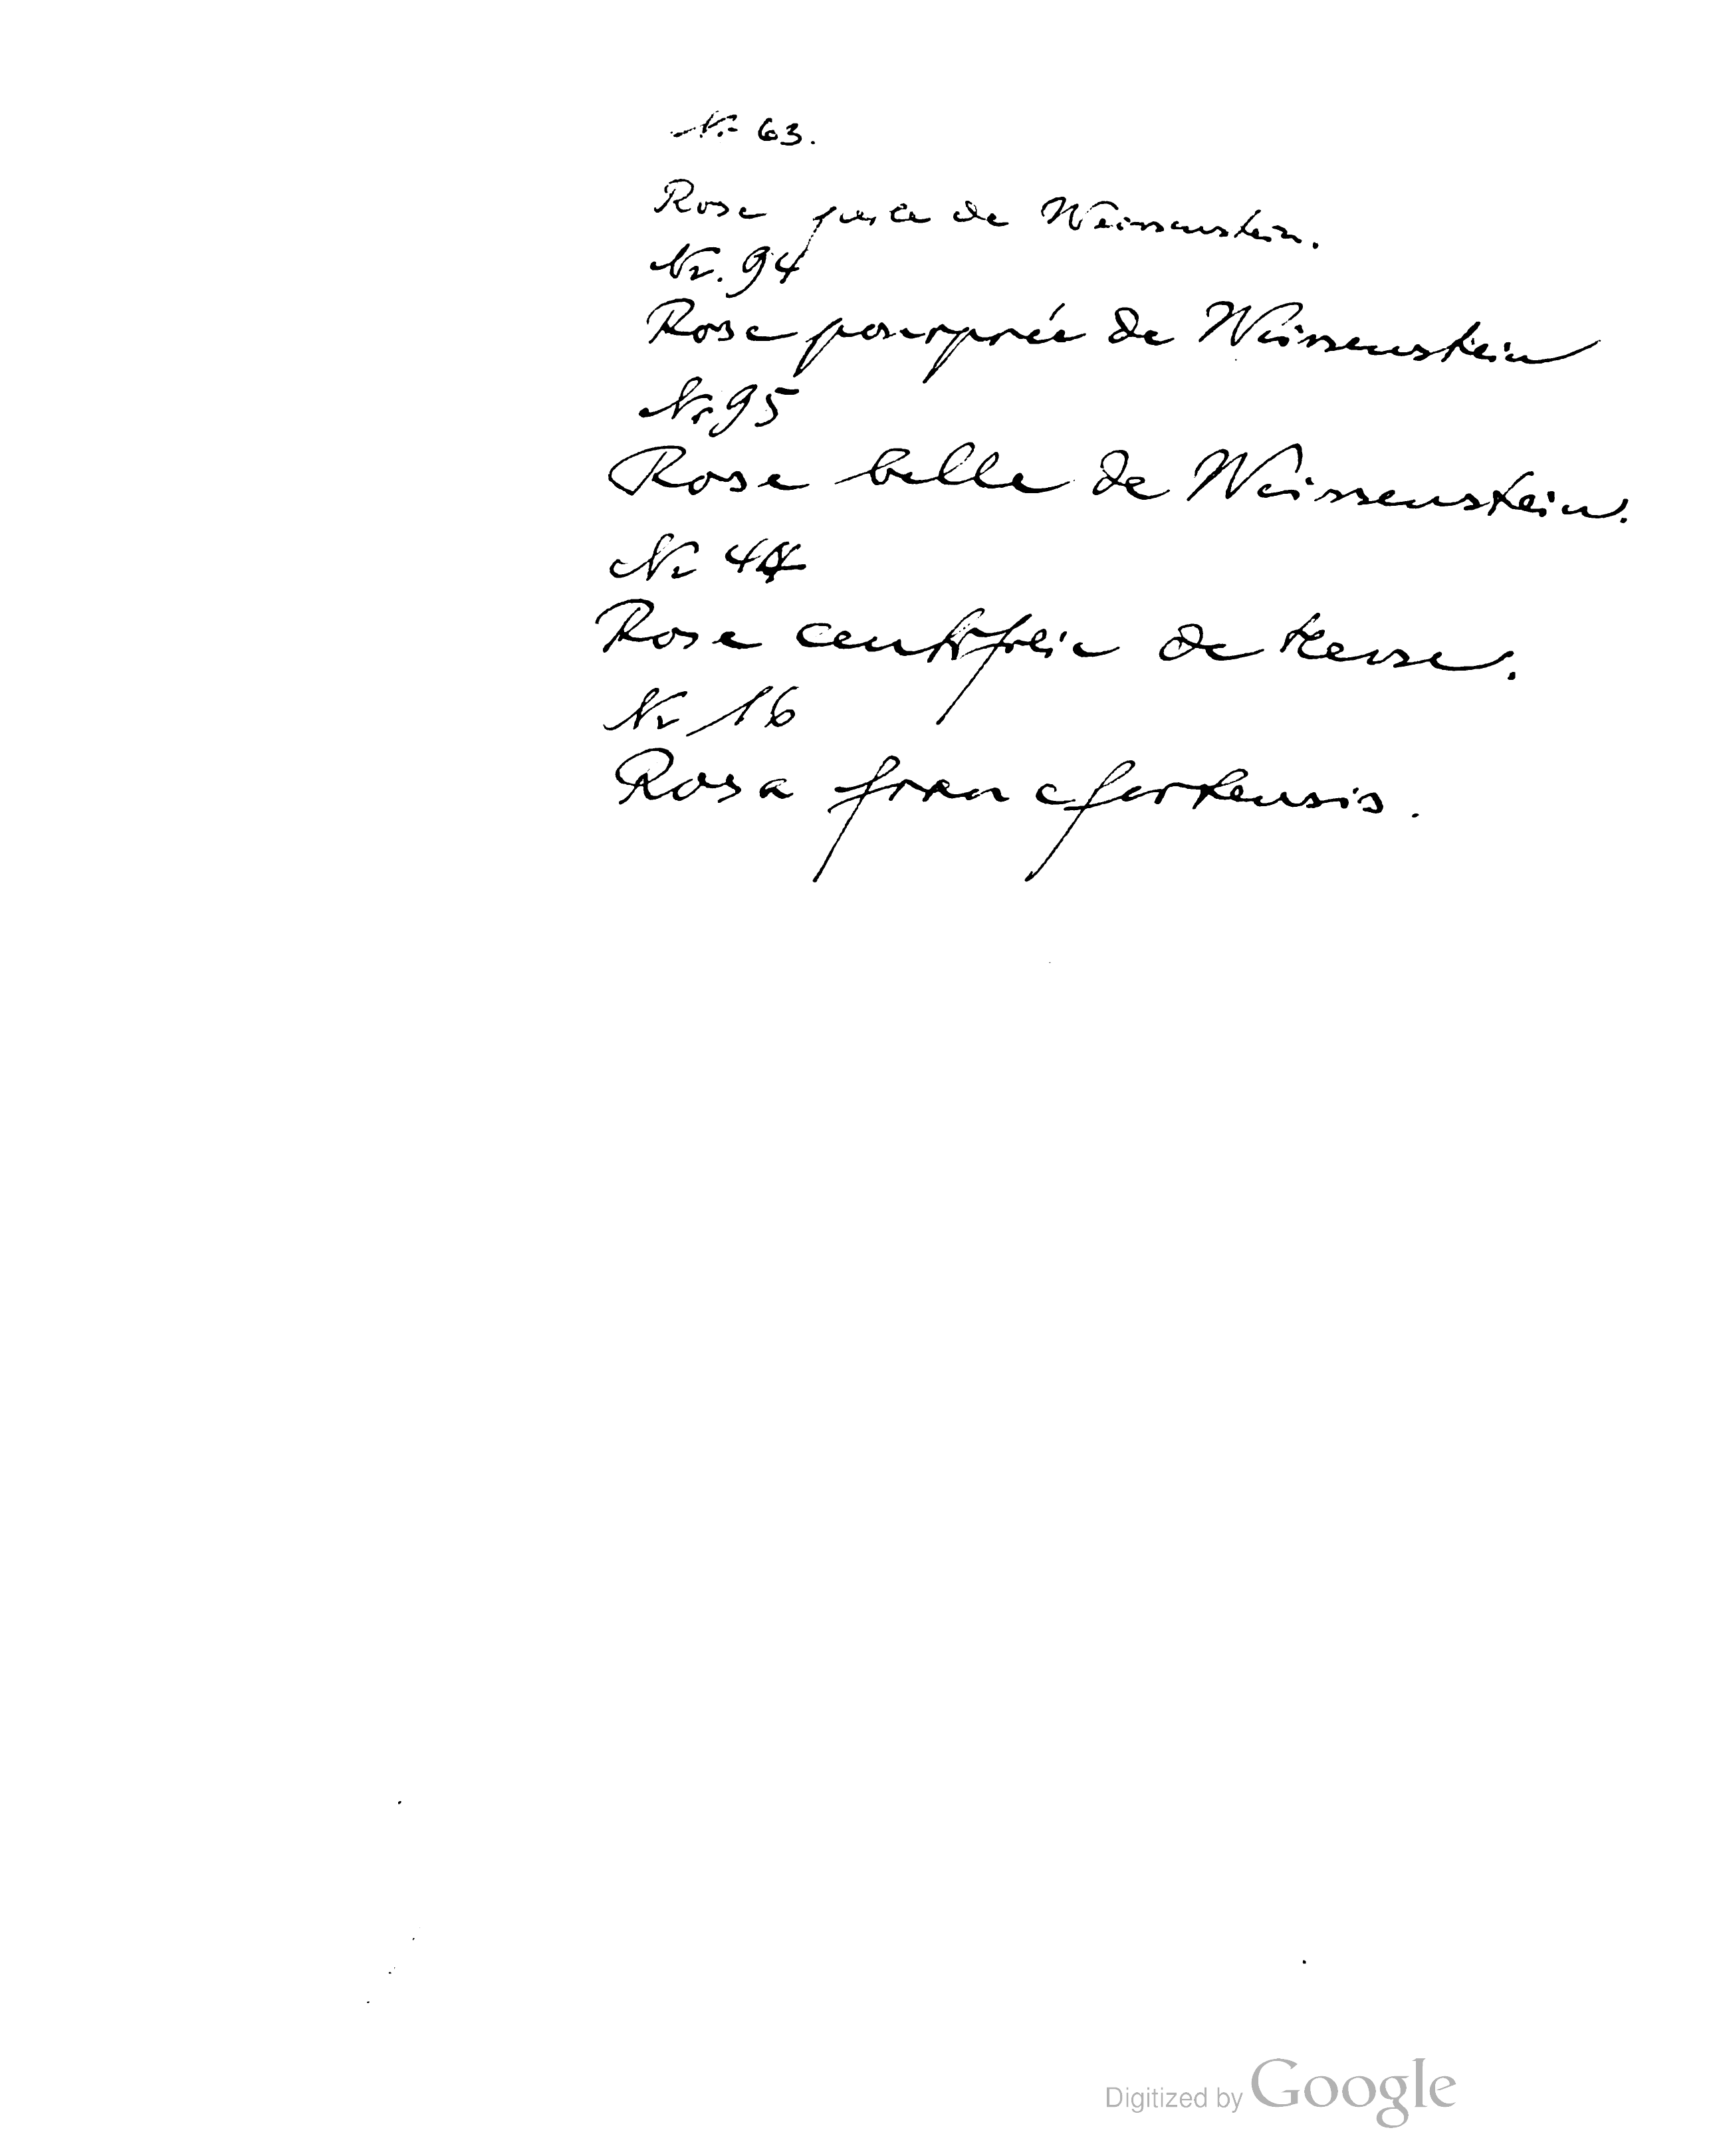 Nr 63.
Rose perle de Weissenstein.
Nr. 94
Rose pourprée de Weissenstein
Nr 95
Rose belle de Weissenstein.
Nr 44
Rose de Hesse.
Nr 16
Rosa francfortensis.
Digitized by Google